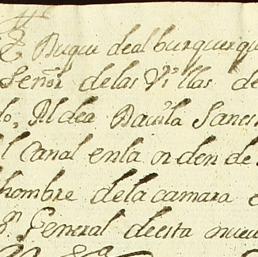 Duque de alburquerqu
Señor de las Villas de
lo, Aldea Davila Sansi
l Canal en la orden de
hombre de la camara
n General de esta nuev